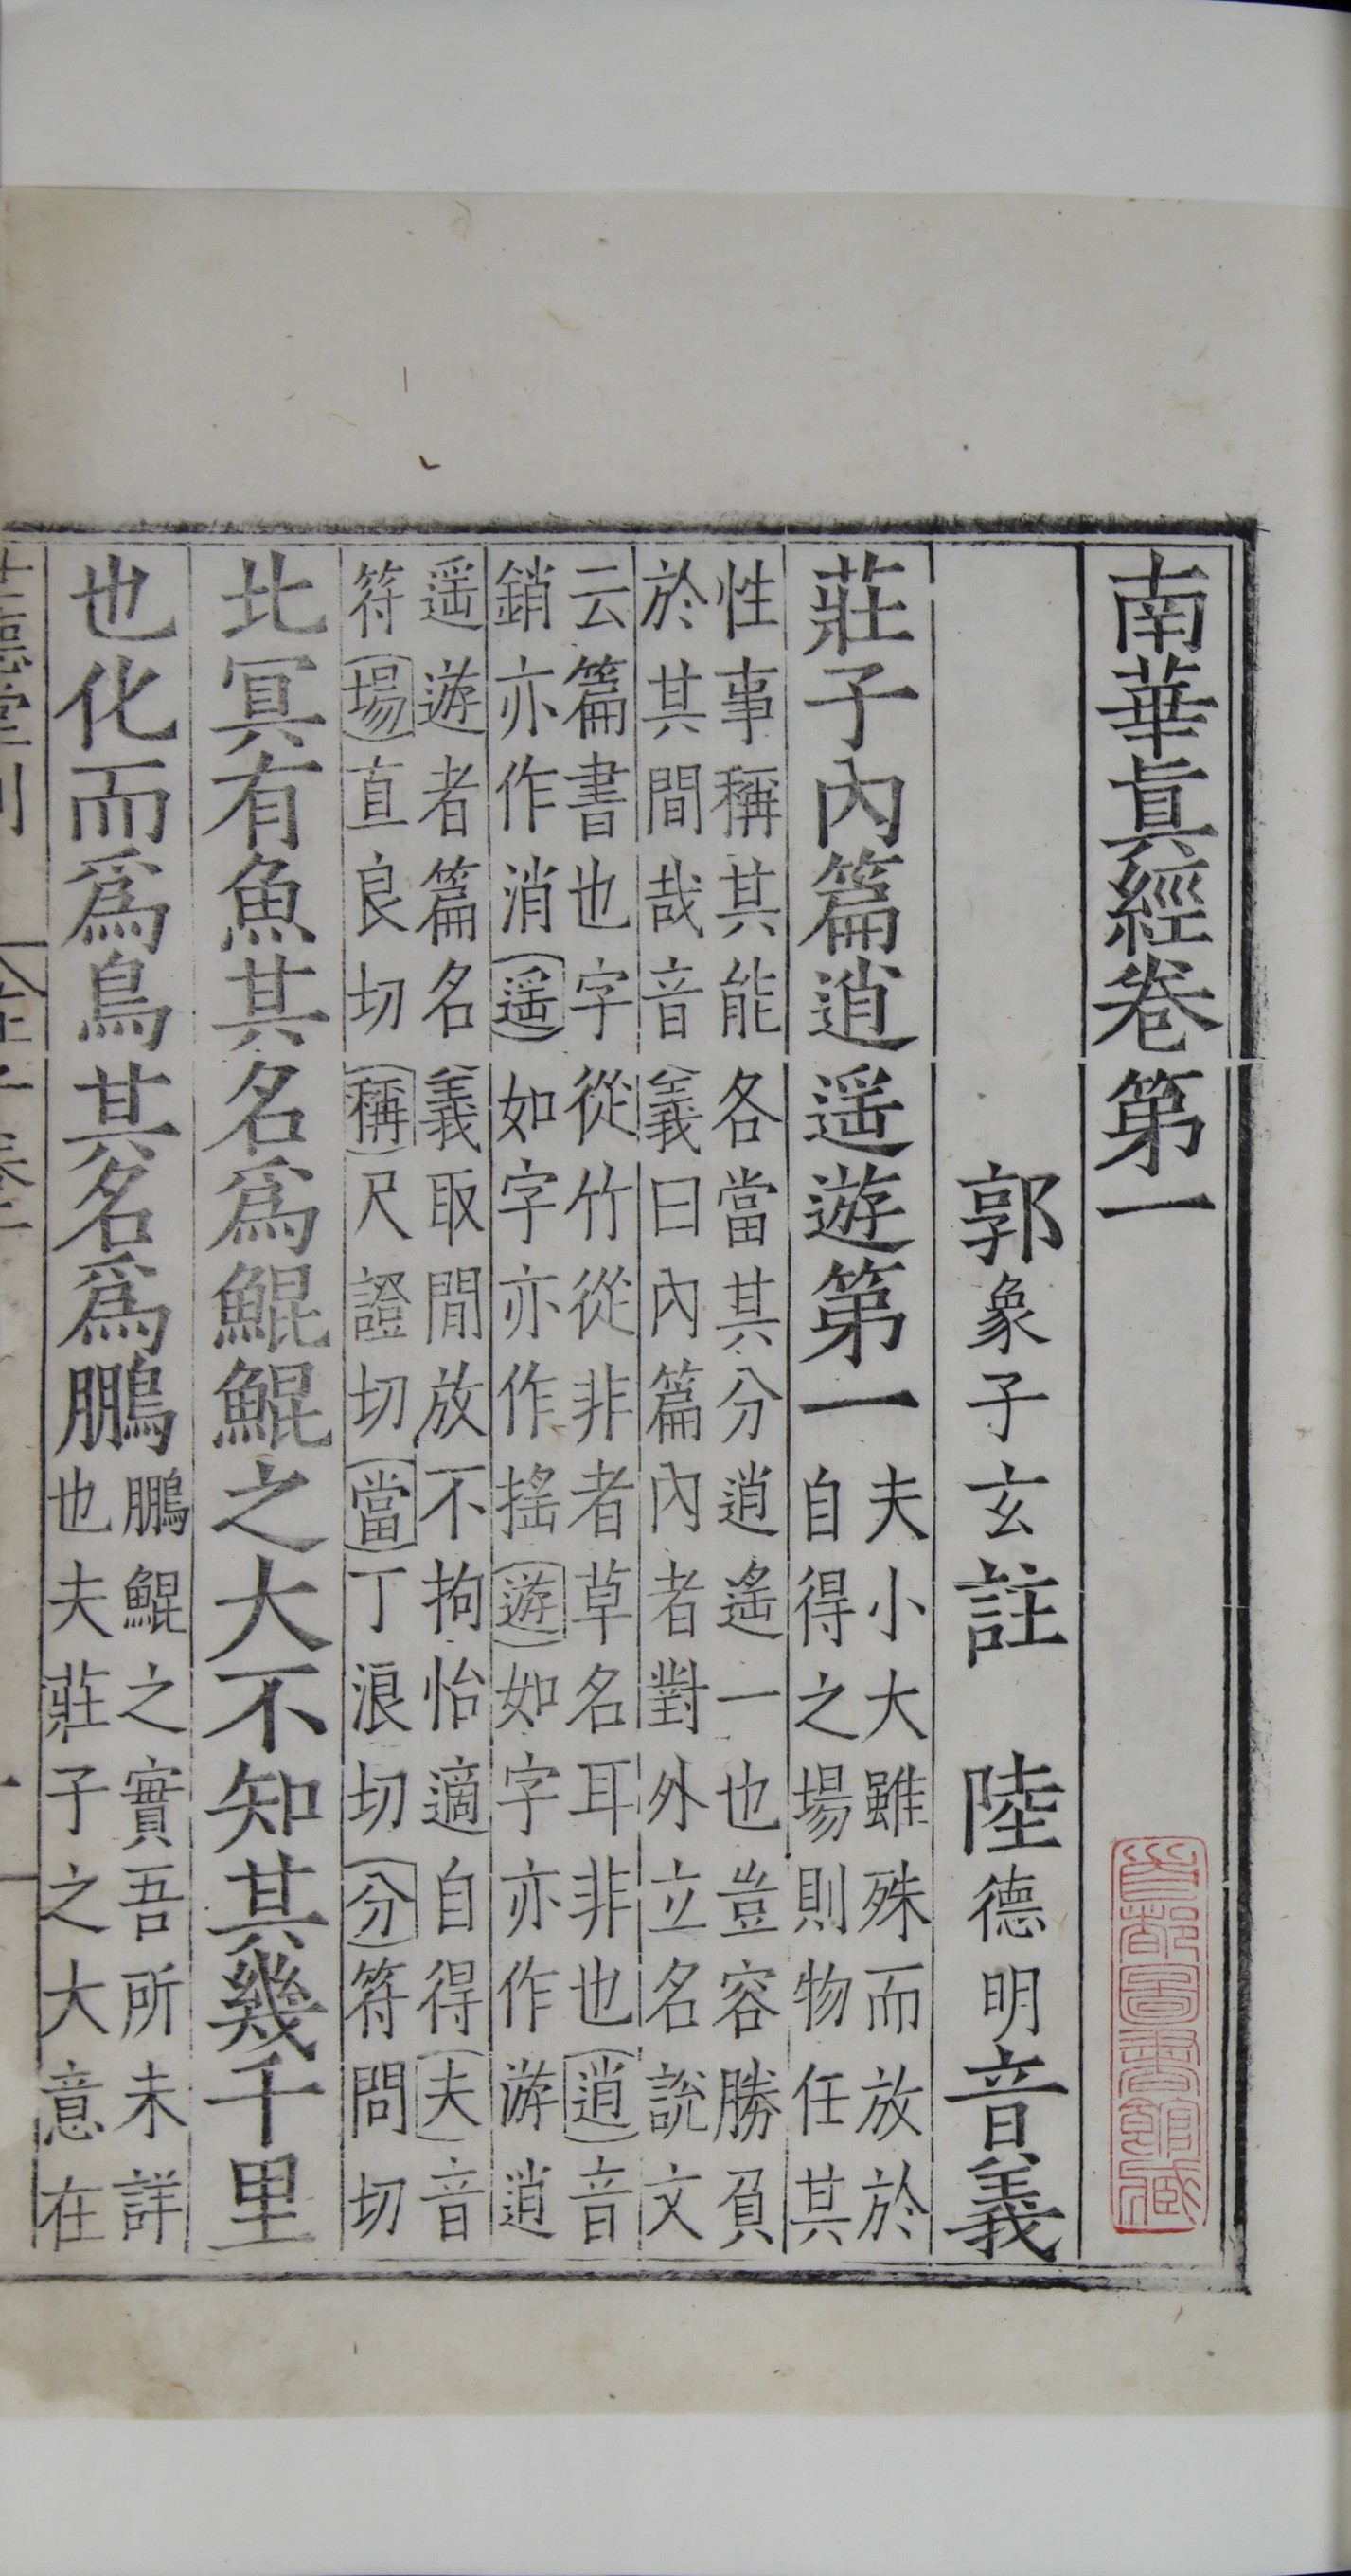 南華眞經卷第一
郭象子玄註　陸德明音義
莊子內篇逍遥遊第一
夫小大雖殊而放於
自得之場則物任其
性事稱其能各當其分逍遙一也豈容勝負
於其間哉音義曰內篇內者對外立名說文
云篇書也字從竹從非者草名耳非也逍音
銷亦作消遥如字亦作搖遊如字亦作游逍
遥遊者篇名義取閒放不拘怡適自得夫音
符場直良切稱尺證切當丁浪切分符問切
北冥有魚其名爲鯤鯤之大不知其幾千里
也化而爲鳥其名爲鵬
鵬鯤之實吾所未詳
也夫莊子之大意在
首都圖書館藏